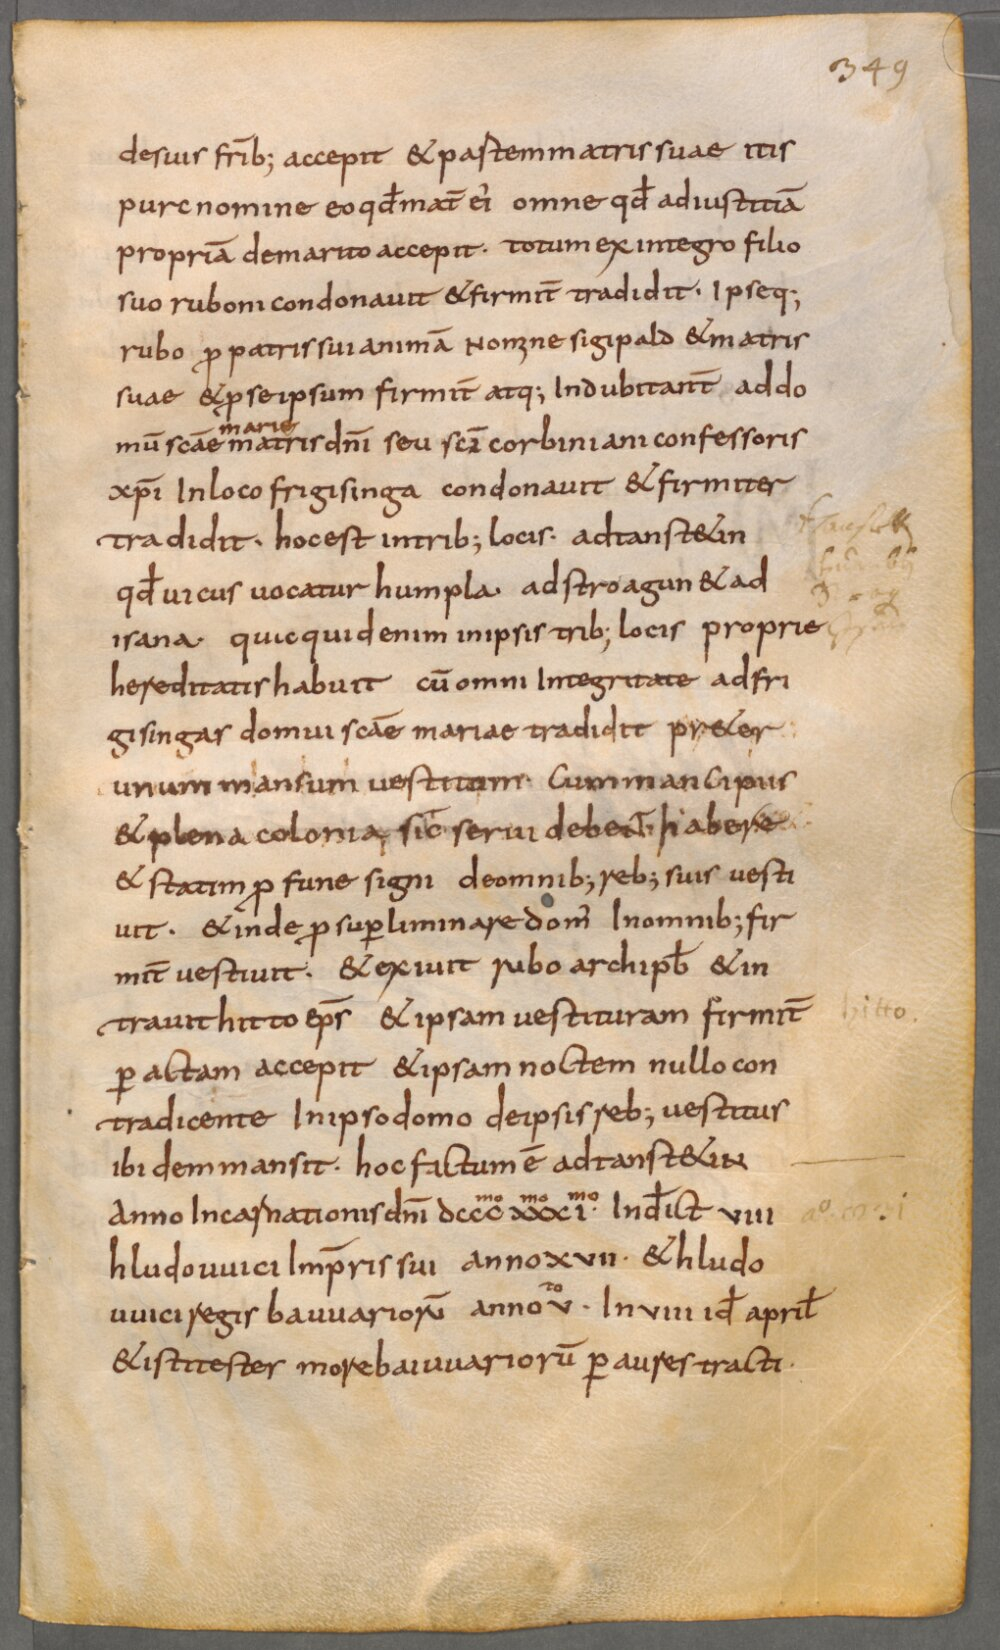 349
desuis frīb; accepit & partem matris suae itis
pure nomine eo qđ mat̄ ei omne qđ ad iustitiā
propriā de marito accepit. totum ex integro filio
suo ruboni condonauit & firmit̄ tradidit. Ipseq;
rubo ꝓ patris sui animā Nomine sigipald & matris
suae & ꝓ se ipsum firmit̄ atq; Indubitant̄ ad do
marię
mū scāe matris dn̄i seu scī corbiniani confessoris
xp̄i In loco frigisinga condonauit & firmiter
tradidit. hoc est in trib; locis. ad tanst&in
qđ uicus uocatur humpla. ad stroagun & ad
isana. quicquid enim in ipsis trib; locis proprie
hereditatis habuit cū omni Integritate ad fri
gisingas domui scāe mariae tradidit pr&er
unum mansum uestitum. Cum manCipiis
& plena colonia, sic̄ serui debent habere
& statim ꝓ fune signi de omnib; reb; suis uesti
uit. & inde ꝓ suꝑliminare dom̄ In omnib; fir
mit̄ uestiuit. & exiuit rubo archipb̄ & in
trauit hitto ep̄s & ipsam uestituram firmit̄
hitto.
ꝑactam accepit & ipsam noctem nullo con
tradicente In ipso domo de ipsis reb; uestitus
ibidem mansit. hoc factum ē ad tanst&in
mo mo mo
Anno Incarnationis dn̄i dccc xxx i. Ind̄ict viii
hludouuici Imp̄ris sui anno xvii. & hludo
to
uuici regis bauuariorū anno v. In viii id̄ april̄
& isti testes more baiuuariorū ꝑ aures tracti.